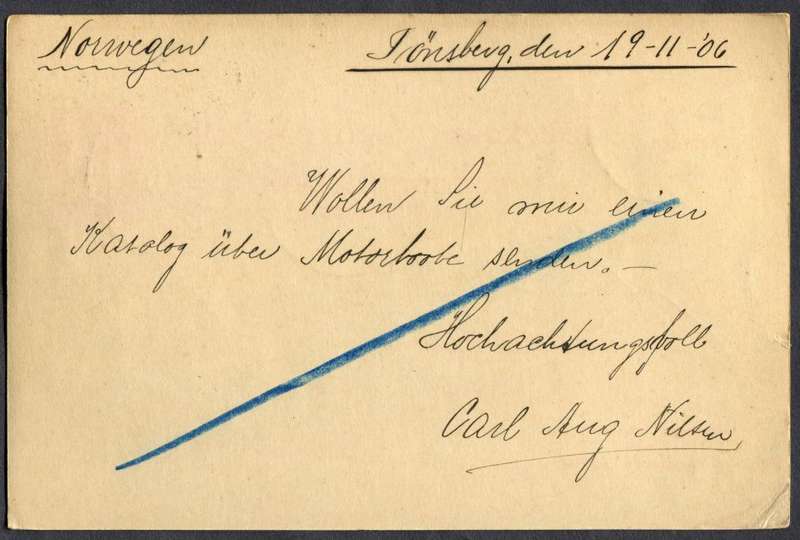 Norwegen
Tönsberg, den 19-11-'06
Wollen Sie mir einen
Katalog über Motorboote senden. —
Hochachtungsfoll
Carl Aug Nilsen